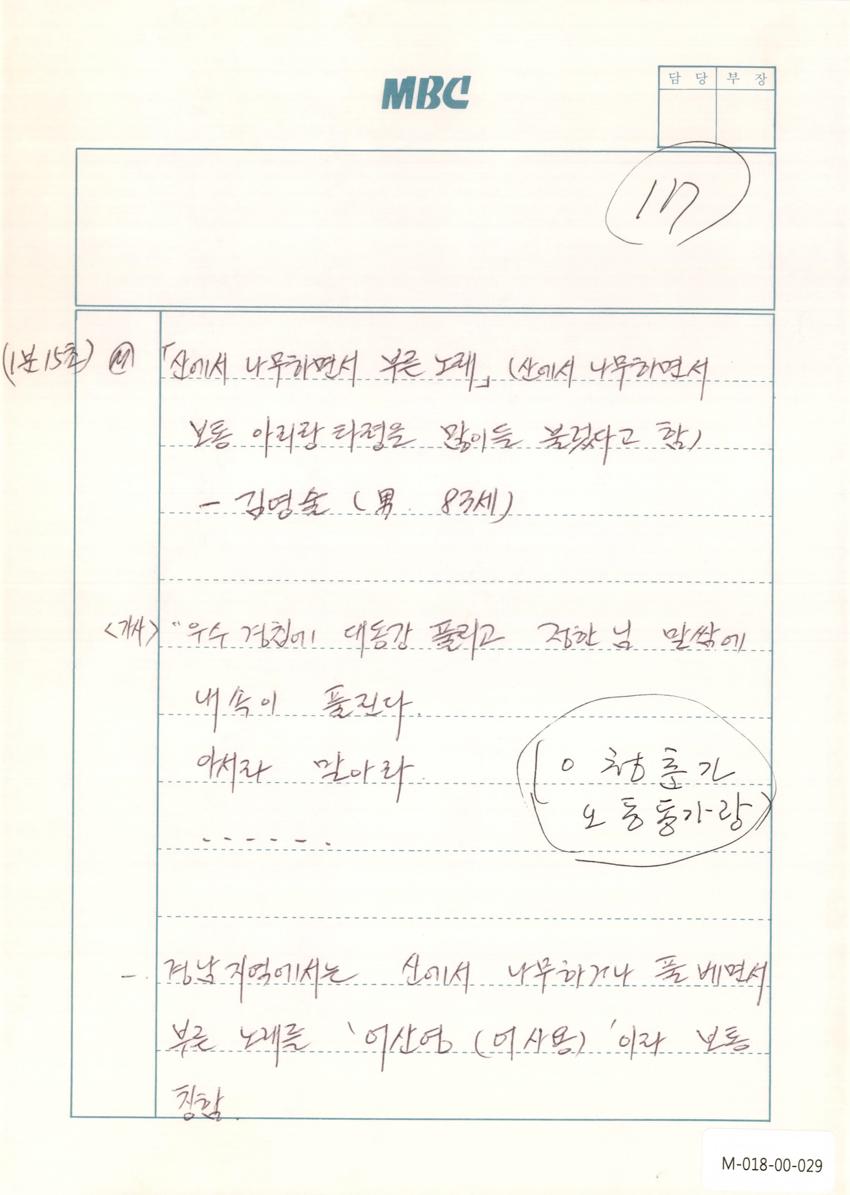 MBC
담 당 부 장
17
(1분15초) Ⓜ 「산에서 나무하면서 부른 노래」 (산에서 나무하면서
보통 아리랑 타령을 많이들 불렀다고 함)
- 김영술 (男. 83세)
<가사> "우수 경칩에 대동강 풀리고 정한 님 말쌈에
내 속이 풀린다.
아서라 말아라.
. - - - - - .
(○ 청춘가
오 동동가락)
-. 경남지역에서는 산에서 나무하거나 풀 베면서
부른 노래를 '어산영 (어사용)'이라 보통
칭함.
M-018-00-029